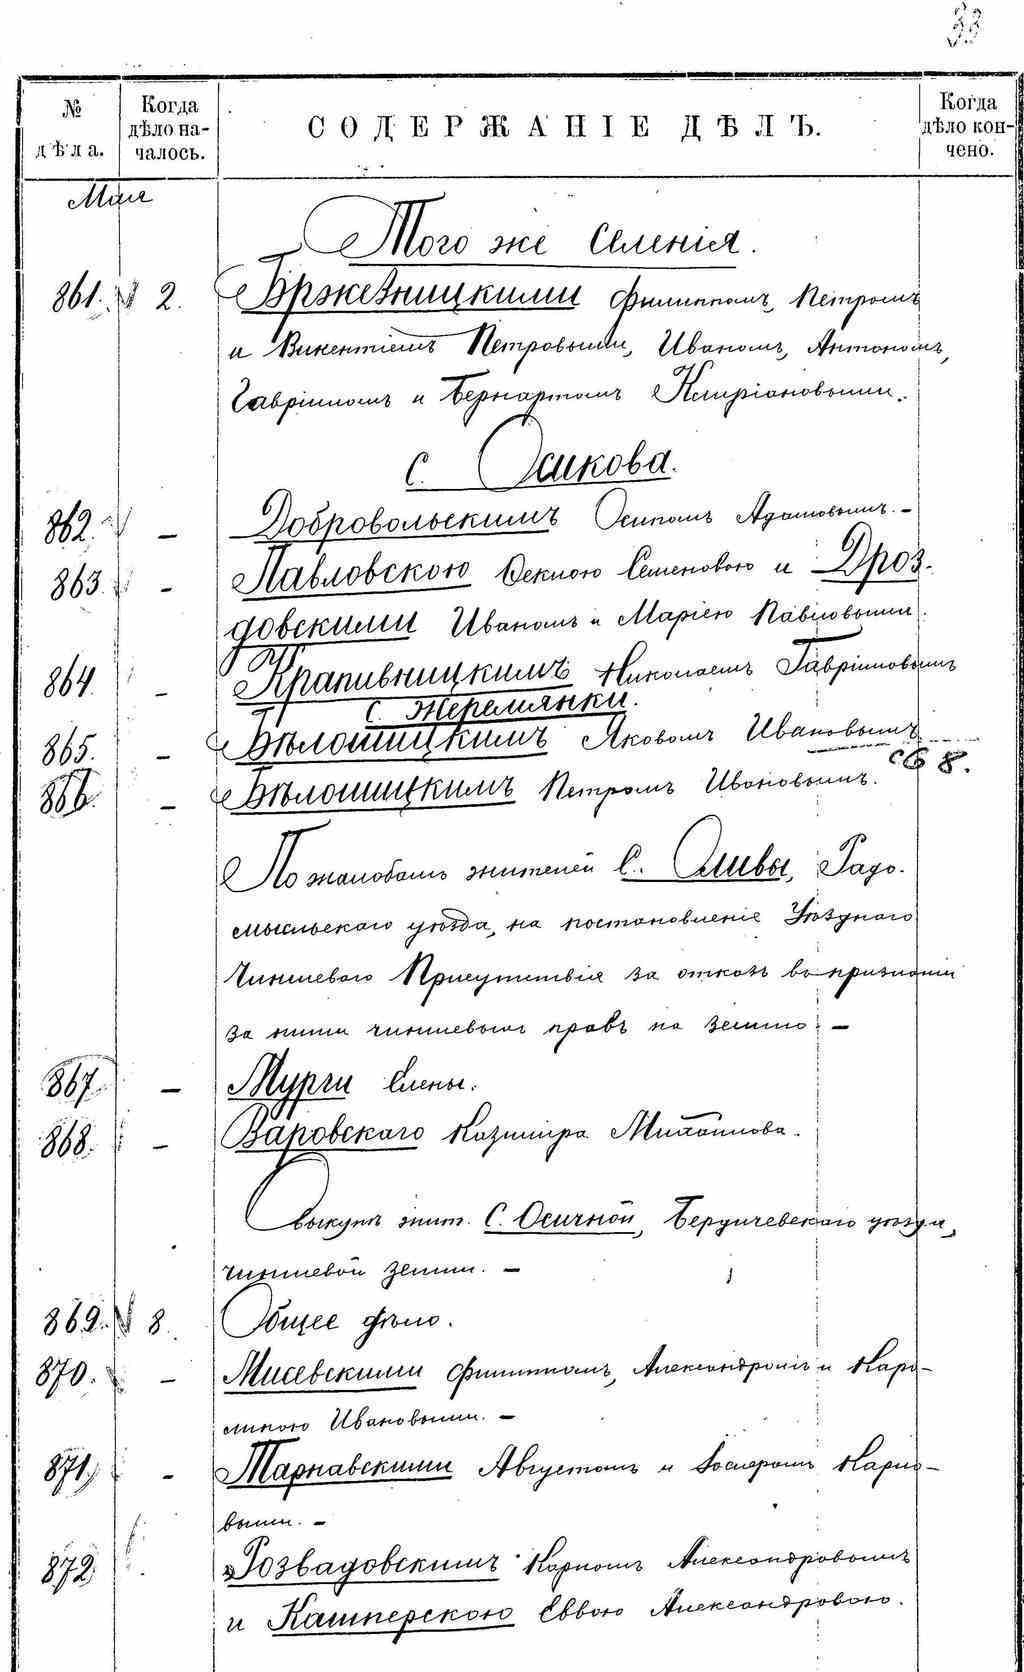 33
№ дѣла.
Когда дѣло началось.
СОДЕРЖАНІЕ ДѢЛЪ.
Когда дѣло кончено.
Мая
Того же Селенія.
861. 2. Бржезницкими Филиппомъ, Петромъ
и Викентіемъ Петровыми, Иваномъ, Антономъ,
Гавріиломъ и Бернартомъ Капріановыми.
С. Осикова.
862. — Добровольскимъ Осипомъ Адамовымъ. —
863. — Павловскою Феклою Семеновою и Дроз-
довскими Иваномъ и Маріею Павловыми.
864. — Крапивницкимъ Николаемъ Гавріиловымъ
С. Жеремянки.
865. — Бѣлошицкимъ Яковомъ Ивановымъ
866. — Бѣлошицкимъ Петромъ Ивановымъ. св 8.
По жалобамъ жителей С. Оливы, Радо-
мысльскаго уѣзда, на постановленіе Уѣзднаго
Чиншеваго Присутствія за отказъ въ признаніи
за ними чиншевыхъ правъ на землю. —
867. — Мурги Елены.
868. — Варовскаго Казиміра Михайлова.
О выкупѣ жит. С. Осичной, Бердичевскаго уѣзда,
чиншевой земли. —
869. 8. Общее дѣло.
870. — Мисевскими Филиппомъ, Александромъ и Каро-
линою Ивановыми. —
871. — Тарнавскими Августомъ и Іосифомъ Карло-
выми. —
872. Розвадовскимъ Карломъ Александровымъ
и Кашперскою Еввою Александровою.